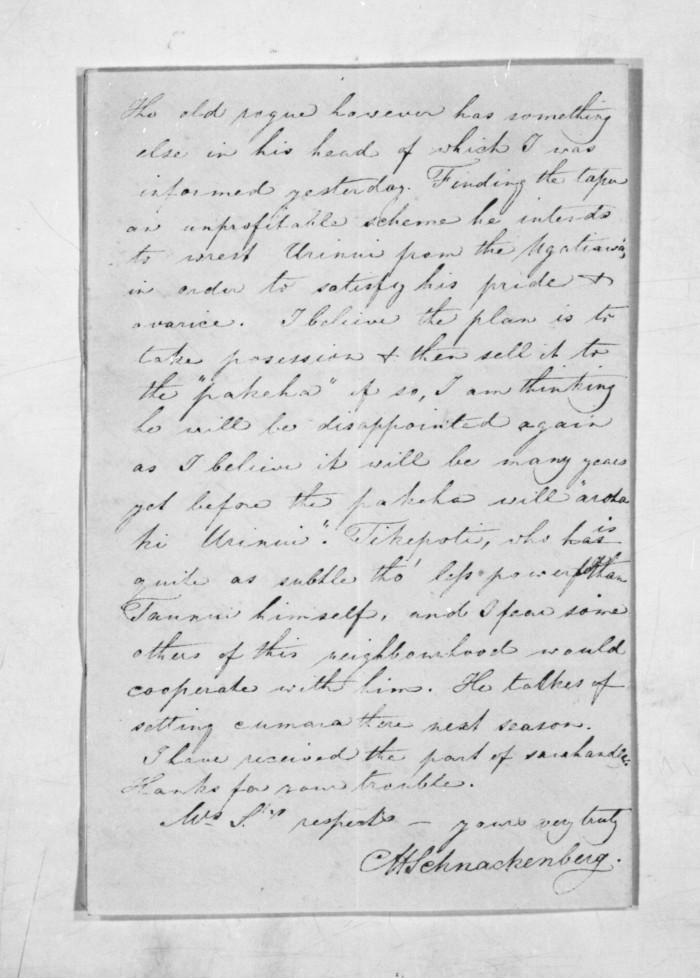 The old rogue however has something
else in his head of which I was
informed yesterday. Finding the tapu
an unprofitable scheme he intends
to wrest Urinui from the Ngatiawa,
in order to satisfy his pride &
avarice. I believe the plan is to
take posession & then sell it to
the "pakeha" if so, I am thinking
he will be disappointed again
as I believe it will be many years
yet before the pakeha will "aroha
ki Urinui". Tikepoti, who has is
quite as subtle tho' less powerful than
Taunui himself, and I fear some
others of this neighbourhood would
cooperate with him. He talkes of
setting cumara there next season.
I have received the part of &c.
Thanks for your trouble.
Mrs S.'s respects — yours very truly
CHSchnackenberg.